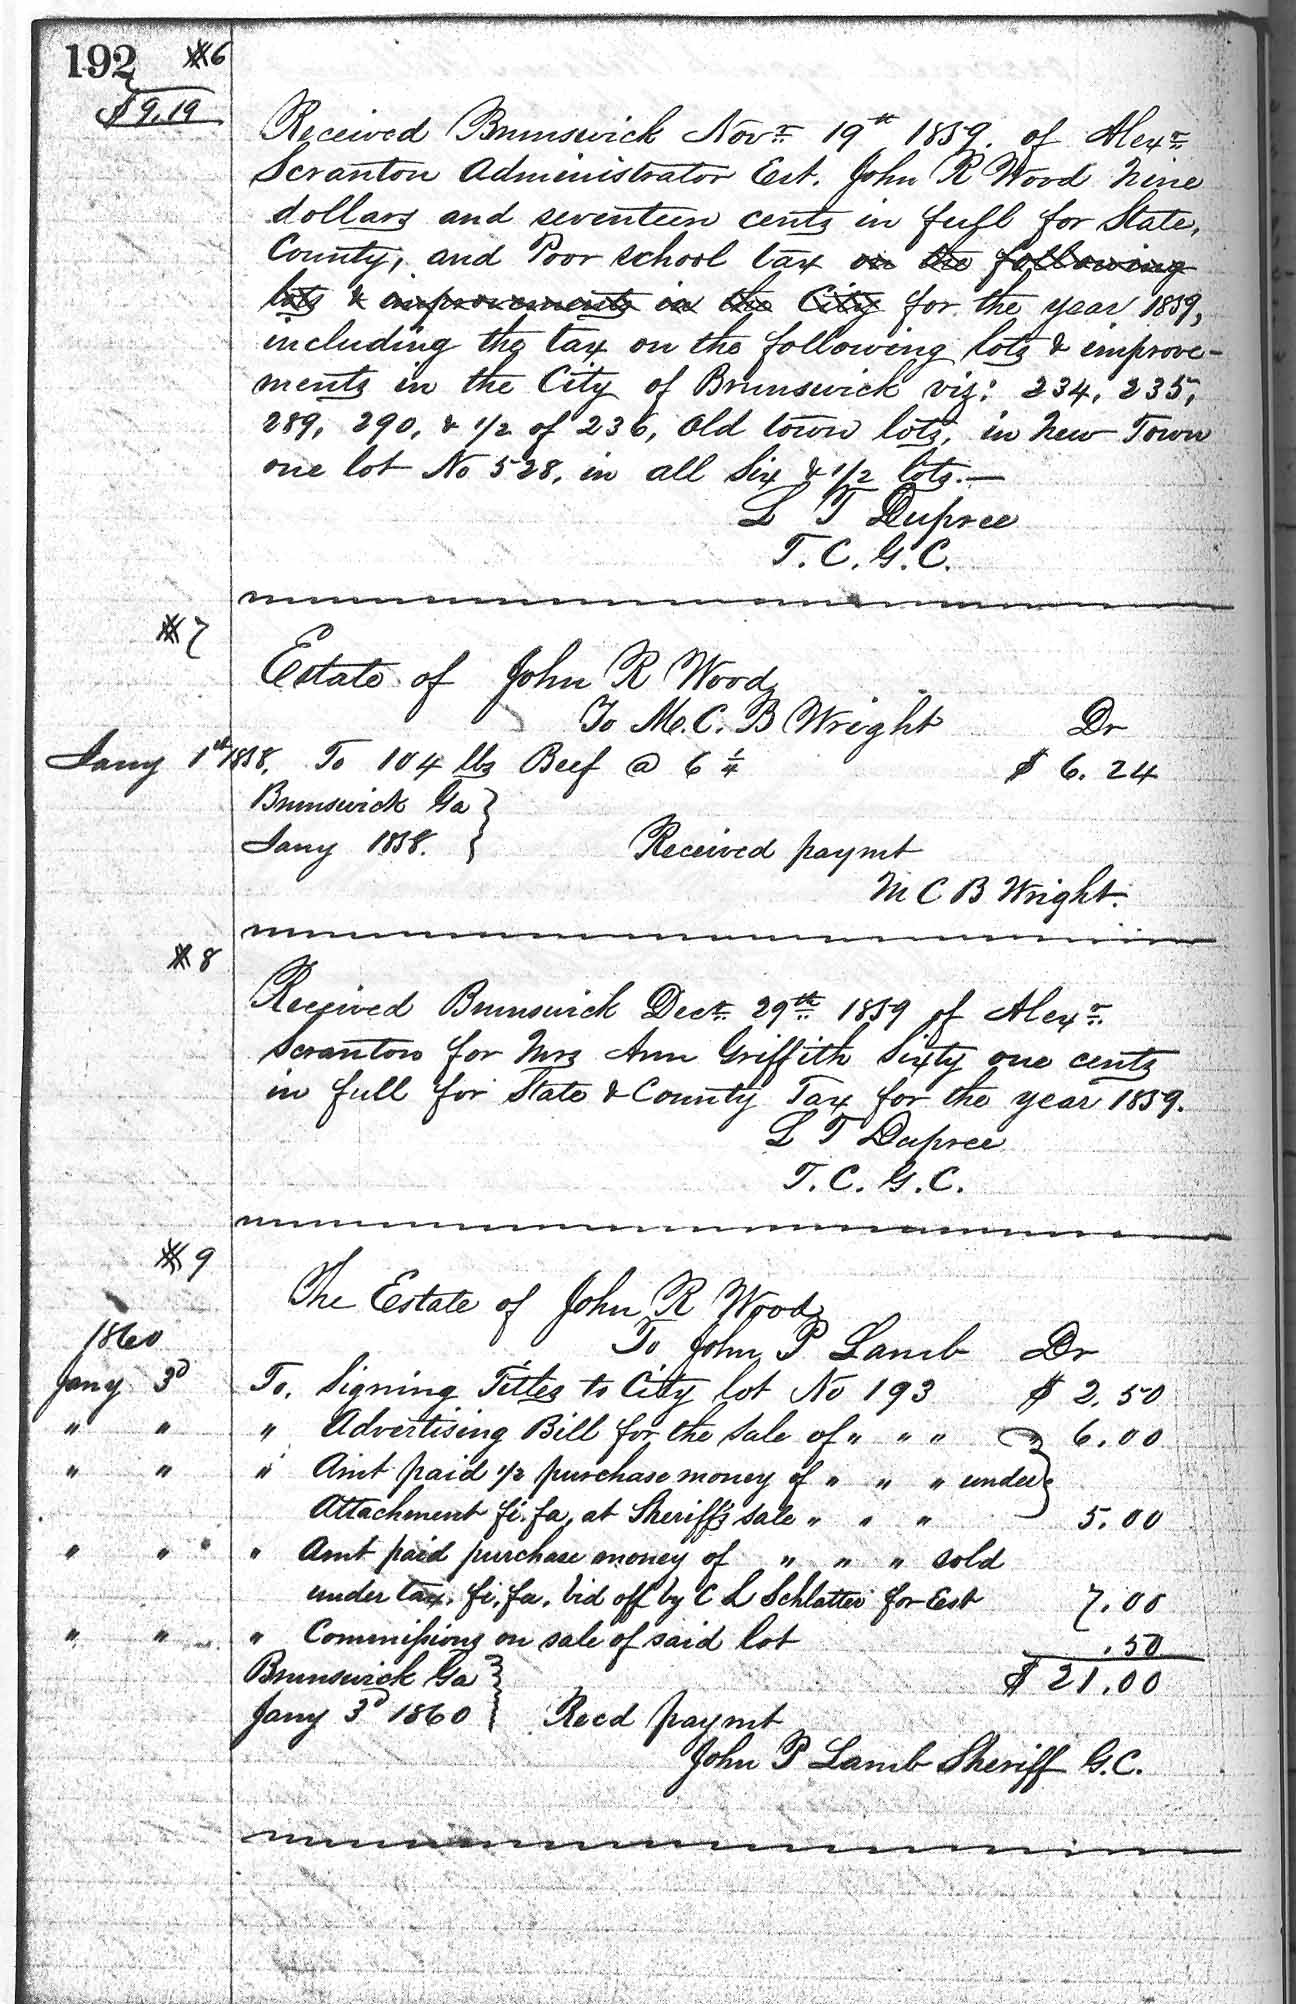 192 #6
$9.19
Received Brunswick Novr 19th 1859. of Alexr
Scranton Administrator Est. John R Wood Nine
dollars and seventeen cents in full for State,
County, and Poor school tax on the following
lots & improvements in the City for the year 1859,
including the tax on the following lots & improve-
ments in the City of Brunswick viz: 234, 235,
289, 290, & 1/2 of 236, Old town lots, in New Town
one lot No 528, in all Six & 1/2 lots.—
L T Dupree
T. C. G. C.
#7
Estate of John R Wood
To M. C. B Wright Dr
Jany 1st 1858. To 104 lbs Beef @ 6 1/4 $ 6.24
Brunswick Ga }
Jany 1858. } Received paymt
M C B Wright.
#8
Received Brunswick Decr 29th 1859 of Alexr
Scranton for Mrs Ann Griffith Sixty one cents
in full for State & County Tax for the year 1859.
L T Dupree
T. C. G. C.
#9
The Estate of John R Wood
1860 To John P Lamb Dr
Jany 3d To. Signing Titles to City lot No 193 $ 2.50
" " " Advertising Bill for the sale of " " " 6.00
" " " Amt paid 1/2 purchase money of " " " under }
Attachment fi.fa. at Sheriff's sale " " " 5.00
" " " Amt paid purchase money of " " " sold
under tax. fi.fa. bid off by C L Schlatter for Est 7.00
" " " Commissions on sale of said lot .50
Brunswick Ga } $ 21.00
Jany 3d 1860 } Recd paymt
John P Lamb Sheriff G.C.